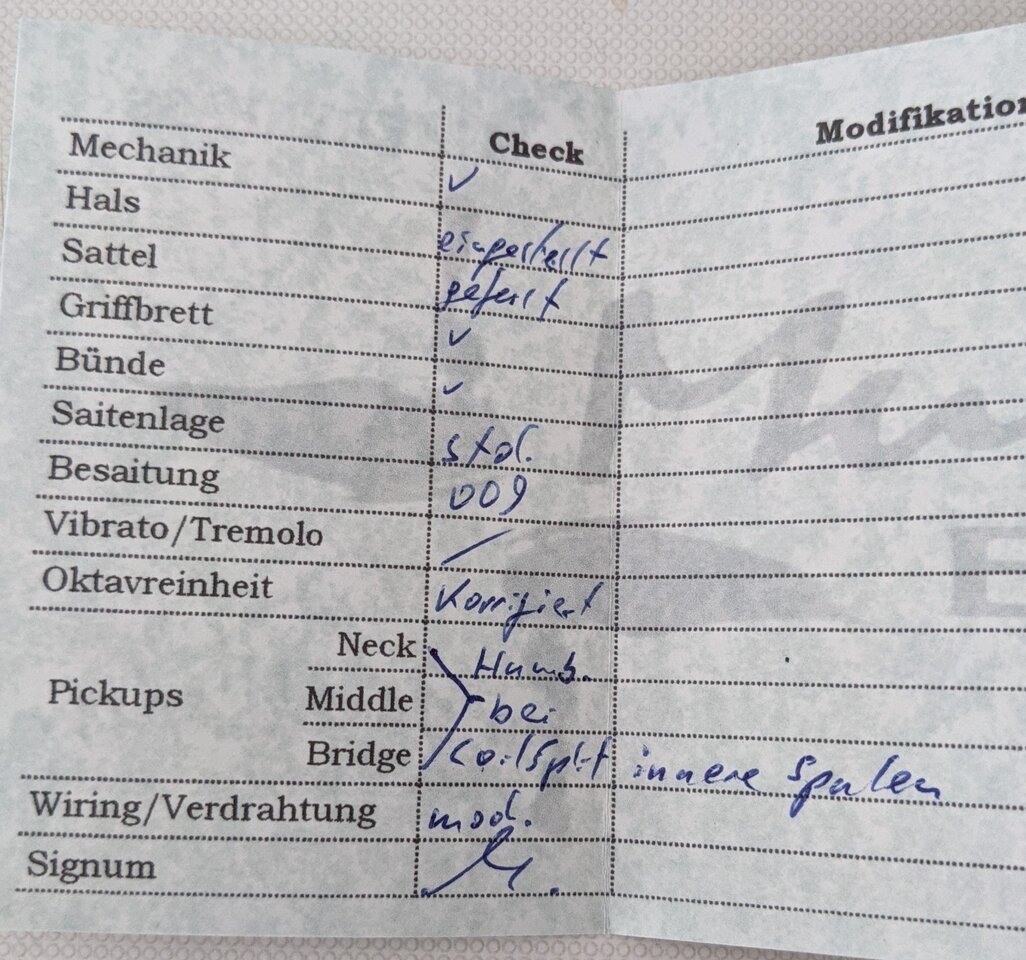 Check Modifikation
Mechanik ✓
Hals eingestellt
Sattel gefeilt
Griffbrett ✓
Bünde ✓
Saitenlage std.
Besaitung 009
Vibrato/Tremolo /
Oktavreinheit Korrigiert
Neck Humb.
Pickups Middle bei
Bridge Coilsplit innere Spulen
Wiring/Verdrahtung mod.
Signum